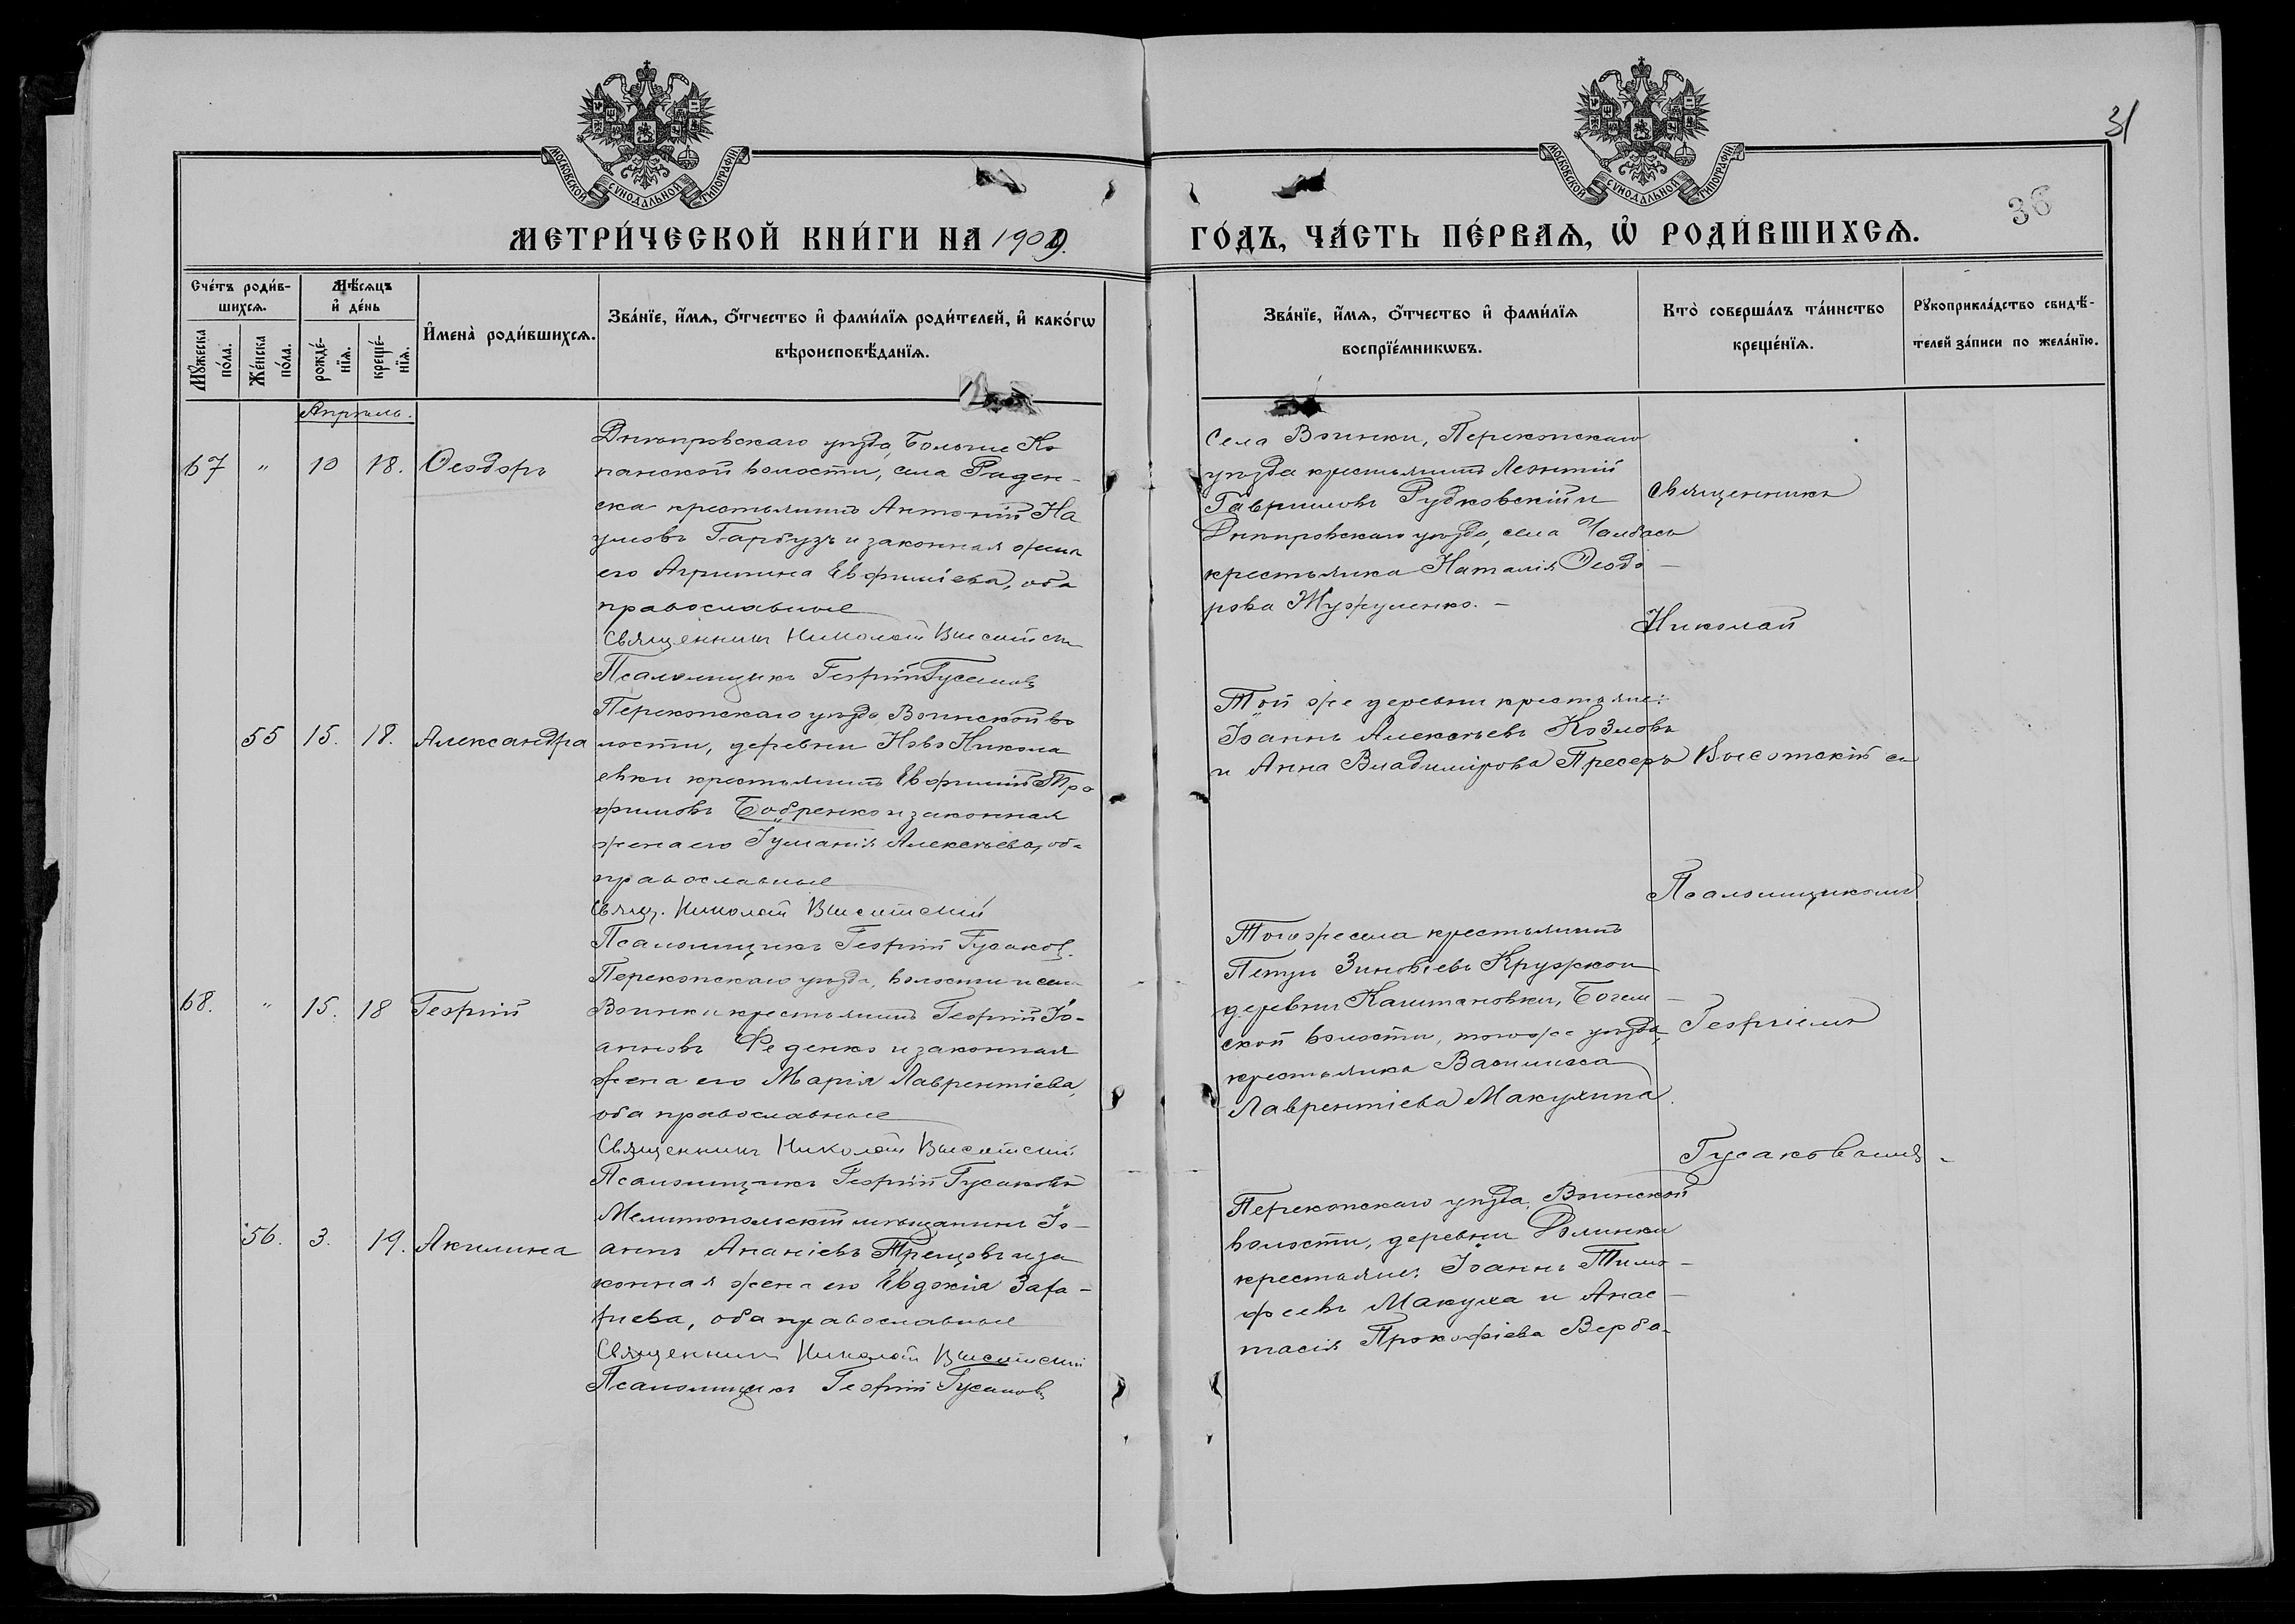 31
36
МОСКОВСКОЙ СУНОДАЛЬНОЙ ТИПОГРАФІИ
МОСКОВСКОЙ СУНОДАЛЬНОЙ ТИПОГРАФІИ
МЕТРИ́ЧЕСКОЙ КНИ́ГИ НА 1909.
ГО́ДЪ, ЧА́СТЬ ПЕ́РВАѦ, Ѡ҆ РОДИ́ВШИХСѦ.
Сче́тъ роди́в-
шихсѧ.
Мꙋжеска
по́ла.
Же́нска
по́ла.
Мѣ́сѧцъ
и҆ де́нь
рожде́-
нїѧ.
креще́-
нїѧ.
И҆мена̀ роди́вшихсѧ.
Зва́нїе, и҆́мѧ, ѻ҆́тчество и҆ фами́лїѧ роди́телей, и҆ како́гѡ
вѣроисповѣ́данїѧ.
Зва́нїе, и҆́мѧ, ѻ҆́тчество и҆ фами́лїѧ
воспрїе́мникѡвъ.
Кто̀ соверша́лъ та́инство
креще́нїѧ.
Рꙋкоприкла́дство свидѣ́-
телей за́писи по жела́нїю.
Апрѣль.
67 " 10 18. Ѳеодоръ
Днѣпровскаго уѣзда, Больше Ко
панской волости, села Раден-
ска крестьянинъ Антоній На
умовъ Гарбузъ и законная жена
его Агрипина Евфиміева, оба
православные
Священникъ Николай Высотскій
Псаломщикъ Георгій Гусаковъ
Села Воинки, Перекопскаго
уѣзда крестьянинъ Леонтій
Гавриловъ Рудковскій и
Днѣпровскаго уѣзда, села Чалбасъ
крестьянка Наталія Ѳеодо-
рова Жужуленко. -
55 15. 18. Александра
Перекопскаго уѣзда, Воинской во
лости, деревни Ново Никола
евки крестьянинъ Евфимій Тро
фимовъ Бобренко и законная
жена его Іуліанія Алексѣева, оба
православные
Свящ. Николай Высотскій
Псаломщикъ Георгій Гусаковъ.
Той же деревни крестьяне:
Іоаннъ Алексѣевъ Козловъ
и Анна Владимірова Пресеръ
68. " 15. 18 Георгій
Перекопскаго уѣзда, волости и села
Воинки крестьянинъ Георгій Іо-
анновъ Феденко и законная
жена его Марія Лаврентіева,
оба православные
Священникъ Николай Высотскій
Псаломщикъ Георгій Гусаковъ
Того же села крестьянинъ
Петръ Зиновіевъ Кружкои
деревни Каштановки, Богем-
ской волости, того же уѣзда,
крестьянка Василисса
Лаврентіева Макухина.
56. 3. 19. Акилина
Мелитопольскій мѣщанинъ Іо-
аннъ Ананіевъ Трещовъ и за
конная жена его Евдокія Заха-
ріева, оба православные
Священникъ Николай Высотскій
Псаломщикъ Георгій Гусаковъ
Перекопскаго уѣзда, Воинской
волости, деревни Долинки
крестьяне: Іоаннъ Тимо-
феевъ Макуха и Анас-
тасія Прокофіева Верба-
Священникъ
Николай
Высотскій съ
Псаломщикомъ
Георгіемъ
Гусаковымъ.